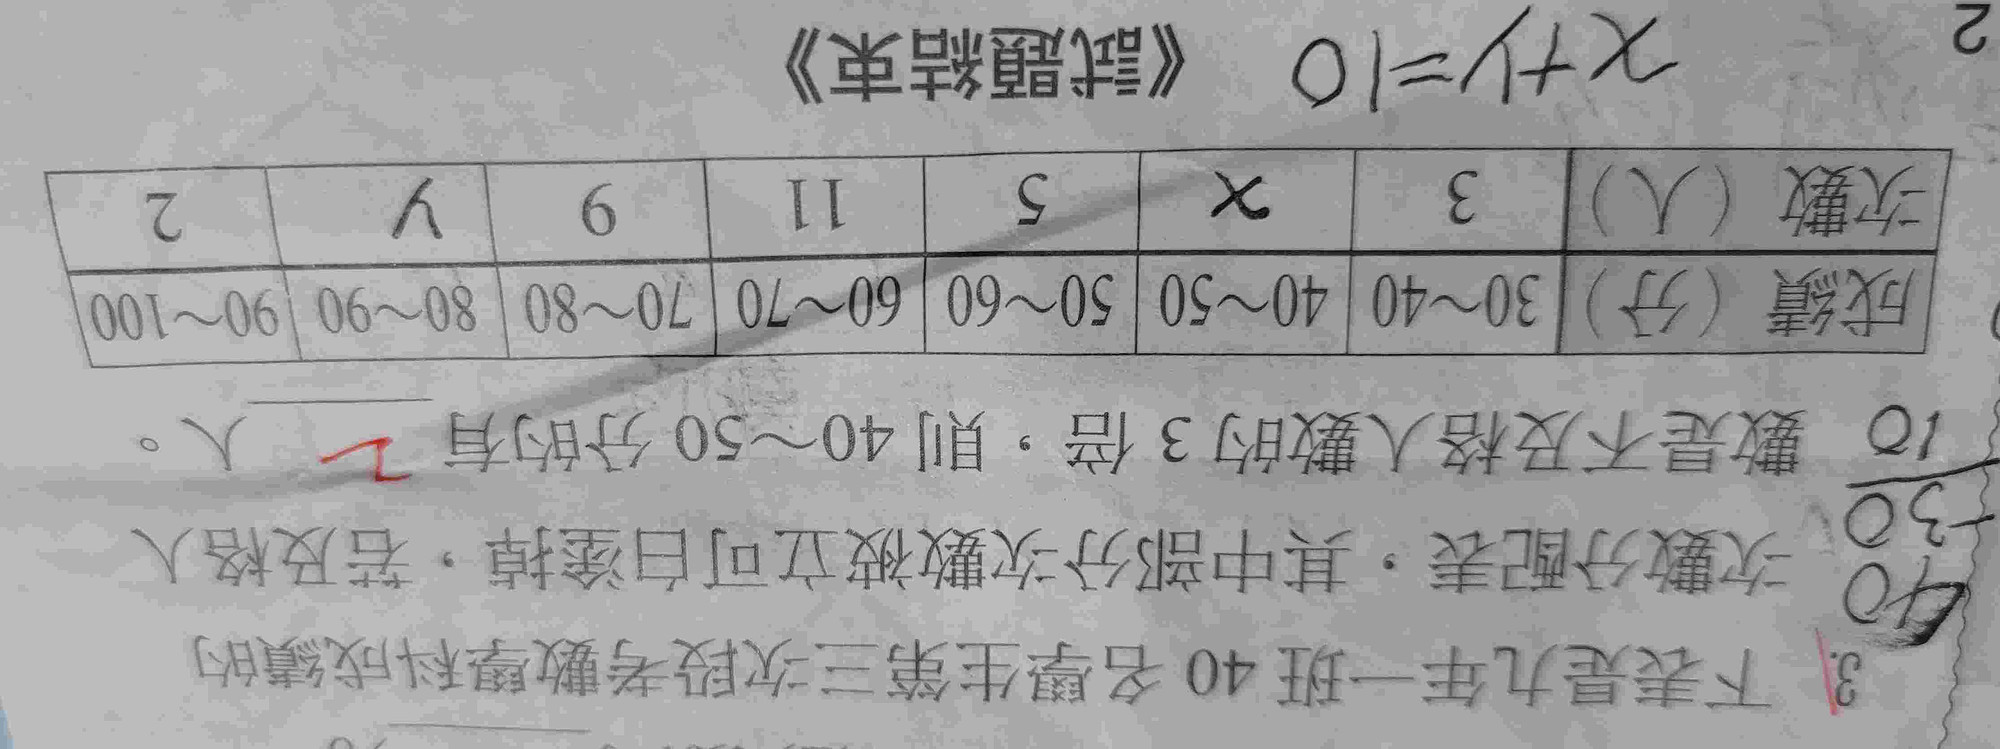 3. 下表是九年一班 40 名學生第三次段考數學科成績的
次數分配表，其中部分次數被立可白塗掉，若及格人
數是不及格人數的 3 倍，則 40～50 分的有 2 人。
40
-30
10
成績（分） 30～40 40～50 50～60 60～70 70～80 80～90 90～100
次數（人） 3 x 5 11 9 y 2
x+y=10 《試題結束》
2